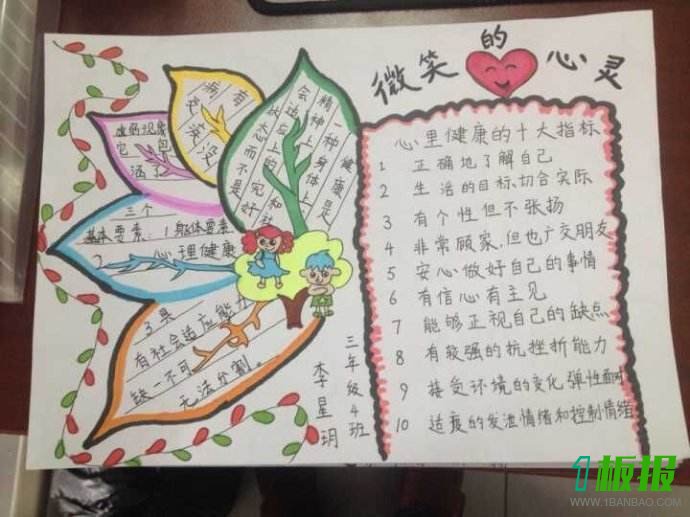 微笑的心灵
健康是
一种身体上
精神上 和社
会适应上的 完好
状态而不是
它 包
涵了
三个
基本要素:1身体要素
2 心理健康
3具
有社会适应能力
缺一不可
无法分割。
三年级4班
李星玥
心里健康的十大指标
1 正确地了解自己
2 生活的目标、切合实际
3 有个性但不张扬
4 非常顾家,但也广交朋友
5 安心做好自己的事情
6 有信心有主见
7 能够正视自己的缺点
8 有较强的抗挫折能力
9 接受环境的变化弹性
10 适度的发泄情绪和控制情绪
1板报
WWW.1BANBAO.COM